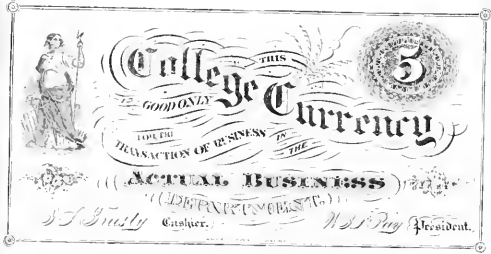 THIS
College Currency
5
IS GOOD ONLY
FOR THE
TRANSACTION OF BUSINESS IN THE
ACTUAL BUSINESS
DEPARTMENT.
Cashier.
President.